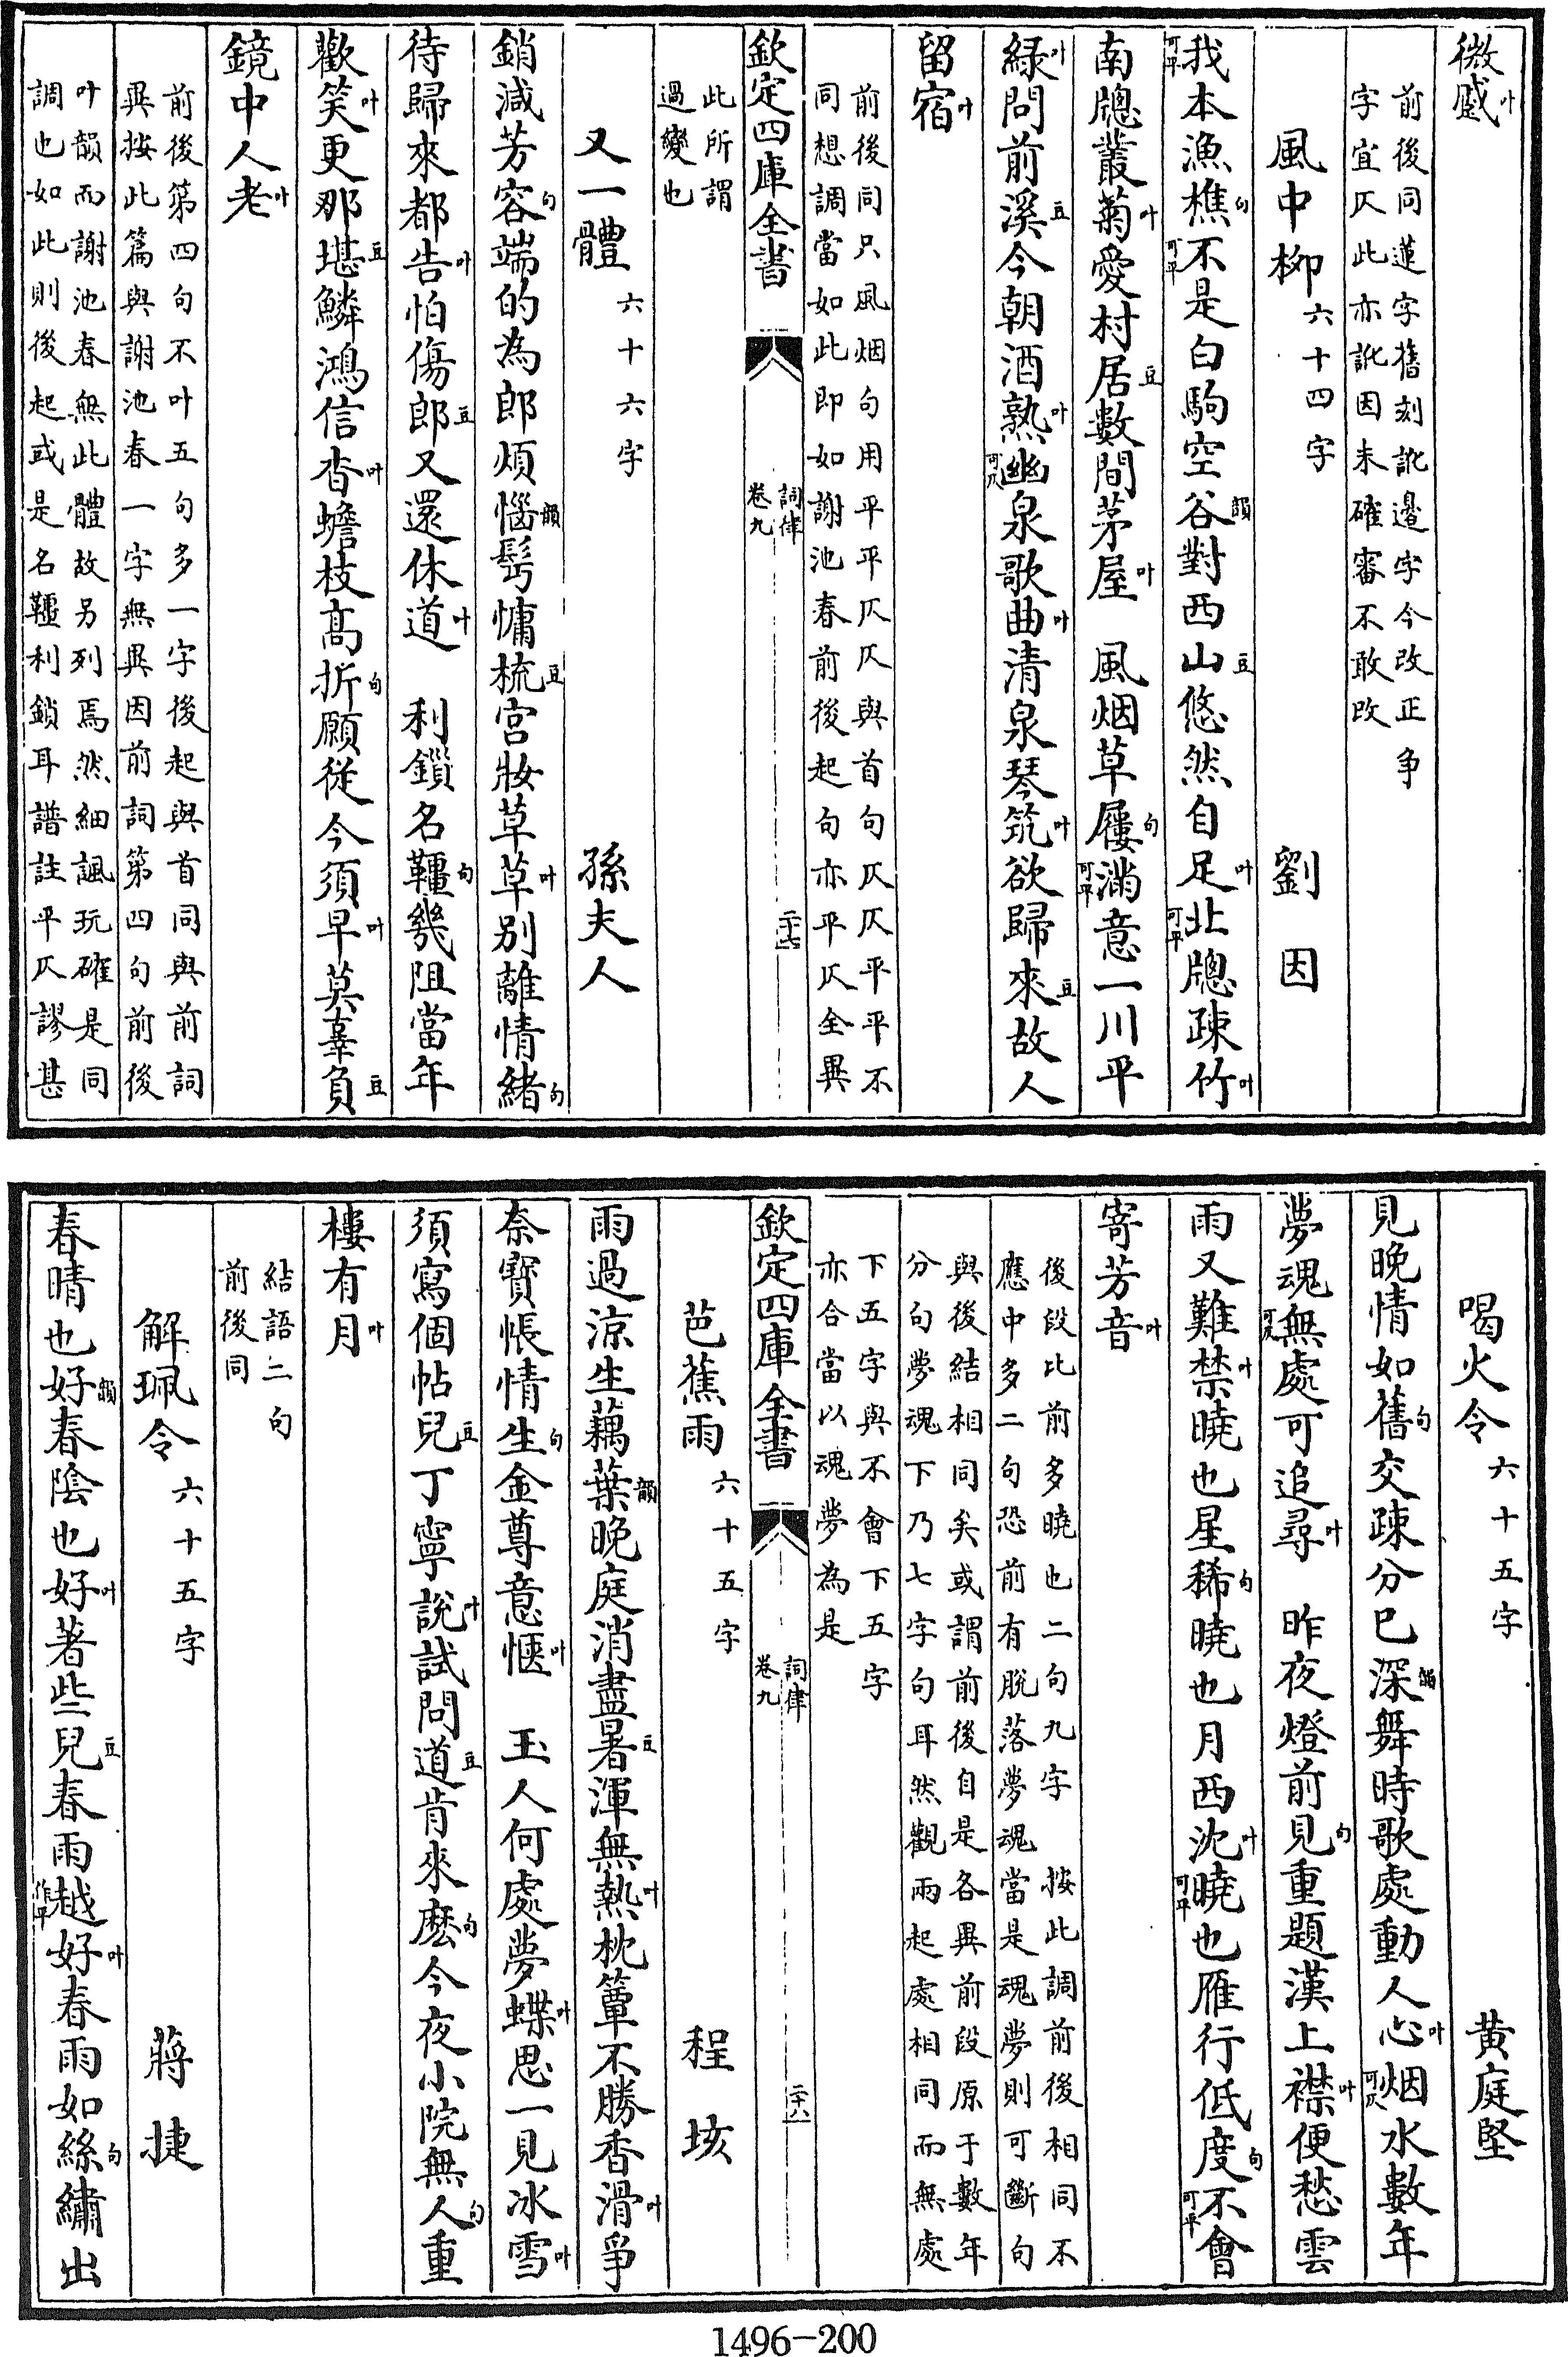 微戚叶
前後同蓮字舊刻訛邊字今改正爭
字宜仄此亦訛因未確審不敢改
風中柳六十四字　劉因
我可平本漁樵句不可平是白駒空谷韻對西山豆悠然自足叶北可平牕疎竹叶
南牕叢菊叶愛村居豆數間茅屋叶　風烟草屨句滿可平意一川平
緑叶問前溪豆今朝酒熟叶幽可仄泉歌曲叶清泉琴筑叶欲歸來豆故人
留宿叶
前後同只風烟句用平平仄仄與首句仄仄平平不
同想調當如此即如謝池春前後起句亦平仄全異
欽定四庫全書　詞律卷九　二十七
此所謂
過變也
又一體六十六字　孫夫人
銷減芳容句端的為郎煩惱韻髩慵梳豆宮妝草草叶别離情緒句
待歸來都告叶怕傷郎豆又還休道叶　利鎖名韁句幾阻當年
歡笑叶更那堪豆鱗鴻信杳叶蟾枝高折句願從今須早叶莫辜負豆
鏡中人老叶
前後第四句不叶五句多一字後起與首同與前詞
異按此篇與謝池春一字無異因前詞第四句前後
叶韻而謝池春無此體故另列焉然細諷玩確是同
調也如此則後起或是名韁利鎖耳譜註平仄謬甚
喝火令六十五字　黄庭堅
見晚情如舊句交疎分已深韻舞時歌處動人心叶烟可仄水數年
夢魂無可仄處可追尋叶　昨夜燈前見句重題漢上襟叶便愁雲
雨又難禁叶曉也星稀句曉也月西沈叶曉可平也雁行低度句不可平會
寄芳音叶
後段比前多曉也二句九字　按此調前後相同不
應中多二句恐前有脱落夢魂當是魂夢則可斷句
與後結相同矣或謂前後自是各異前段原于數年
分句夢魂下乃七字句耳然觀兩起處相同而無處
下五字與不會下五字
亦合當以魂夢為是
欽定四庫全書　詞律卷九　二十八
芭蕉雨六十五字　程垓
雨過涼生藕葉韻晚庭消盡暑豆渾無熱叶枕簟不勝香滑叶爭
奈寶帳情生句金尊意愜叶　玉人何處夢蝶叶思一見冰雪叶
須寫個帖兒豆丁寧說叶試問道豆肯來麽句今夜小院無人句重
樓有月叶
結語二句
前後同
解珮令六十五字　蔣捷
春晴也好韻春陰也好叶著些兒豆春雨越作平好叶春雨如絲句繡出
1496-200